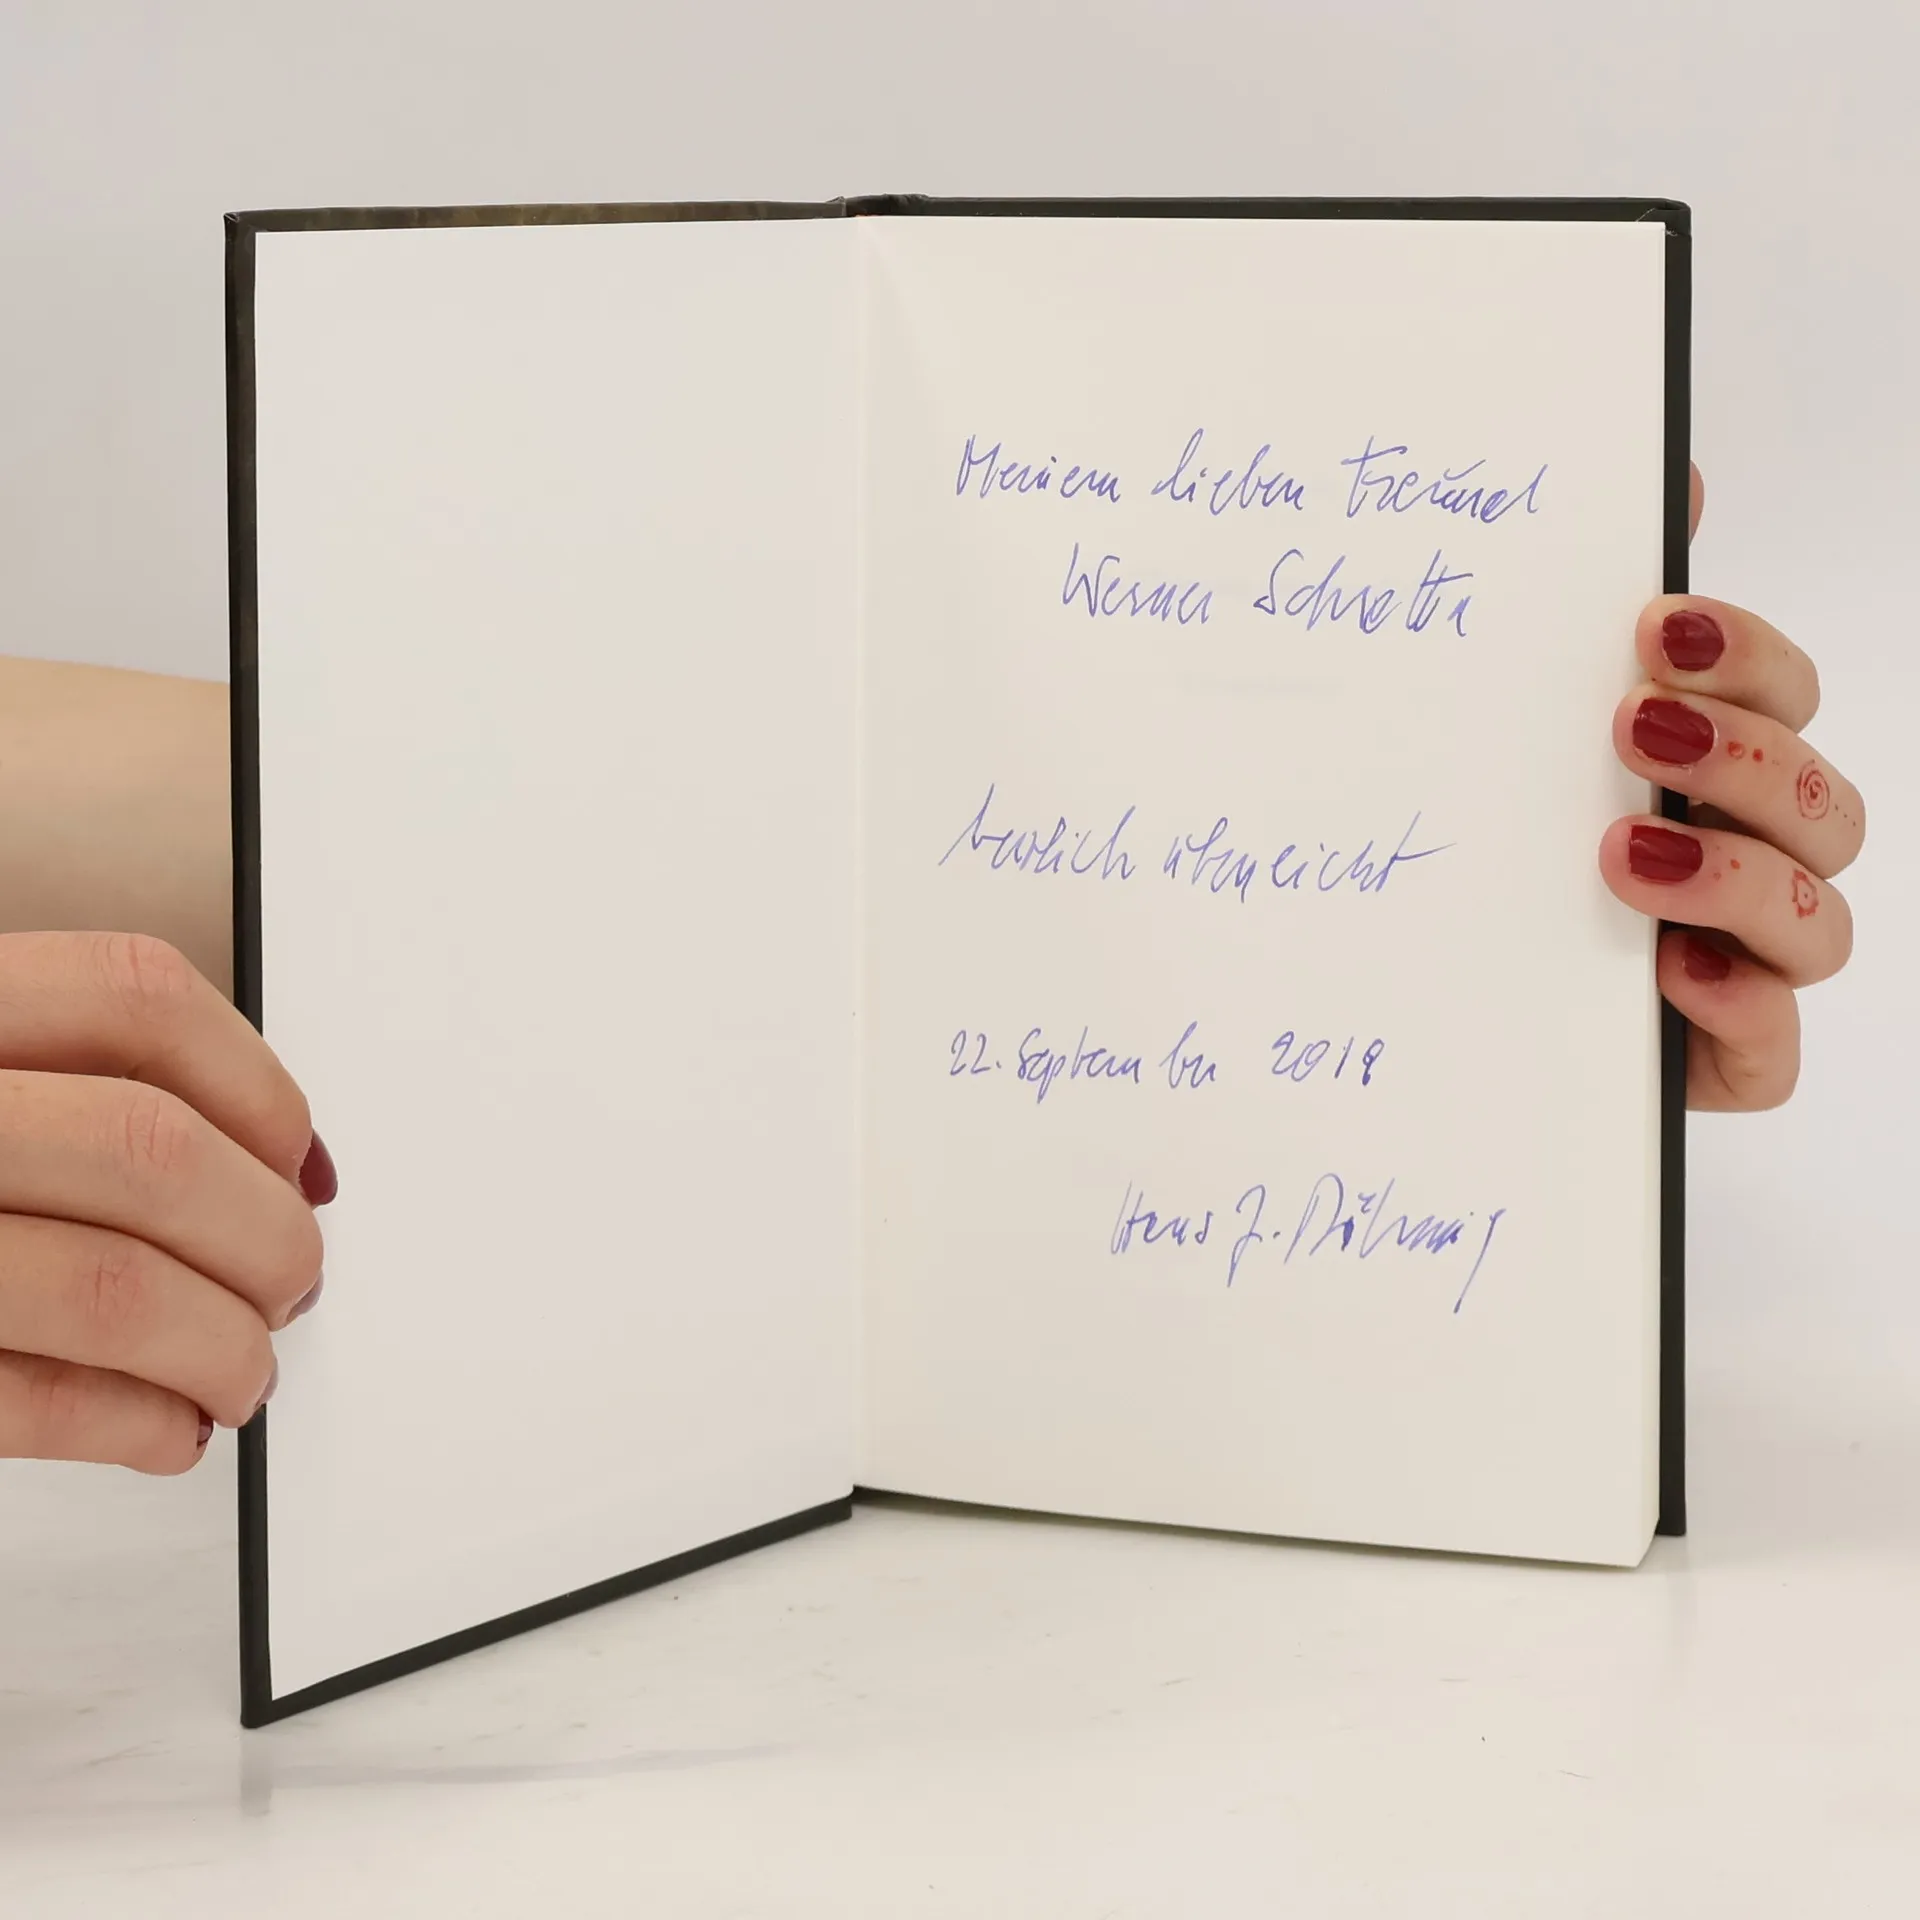 Meinem lieben Freund
Werner
herzlich überreicht
22. September 2018
Hans J.